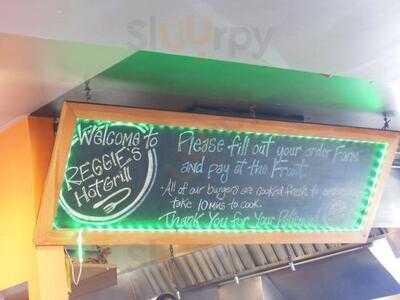 sluurpy
Welcome to
REGGIE'S
Hot Grill
Please fill out your order Form
and pay at the Front.
- All of our burgers are cooked fresh to order and
take 10 mins to cook.
Thank You for Your Patience!